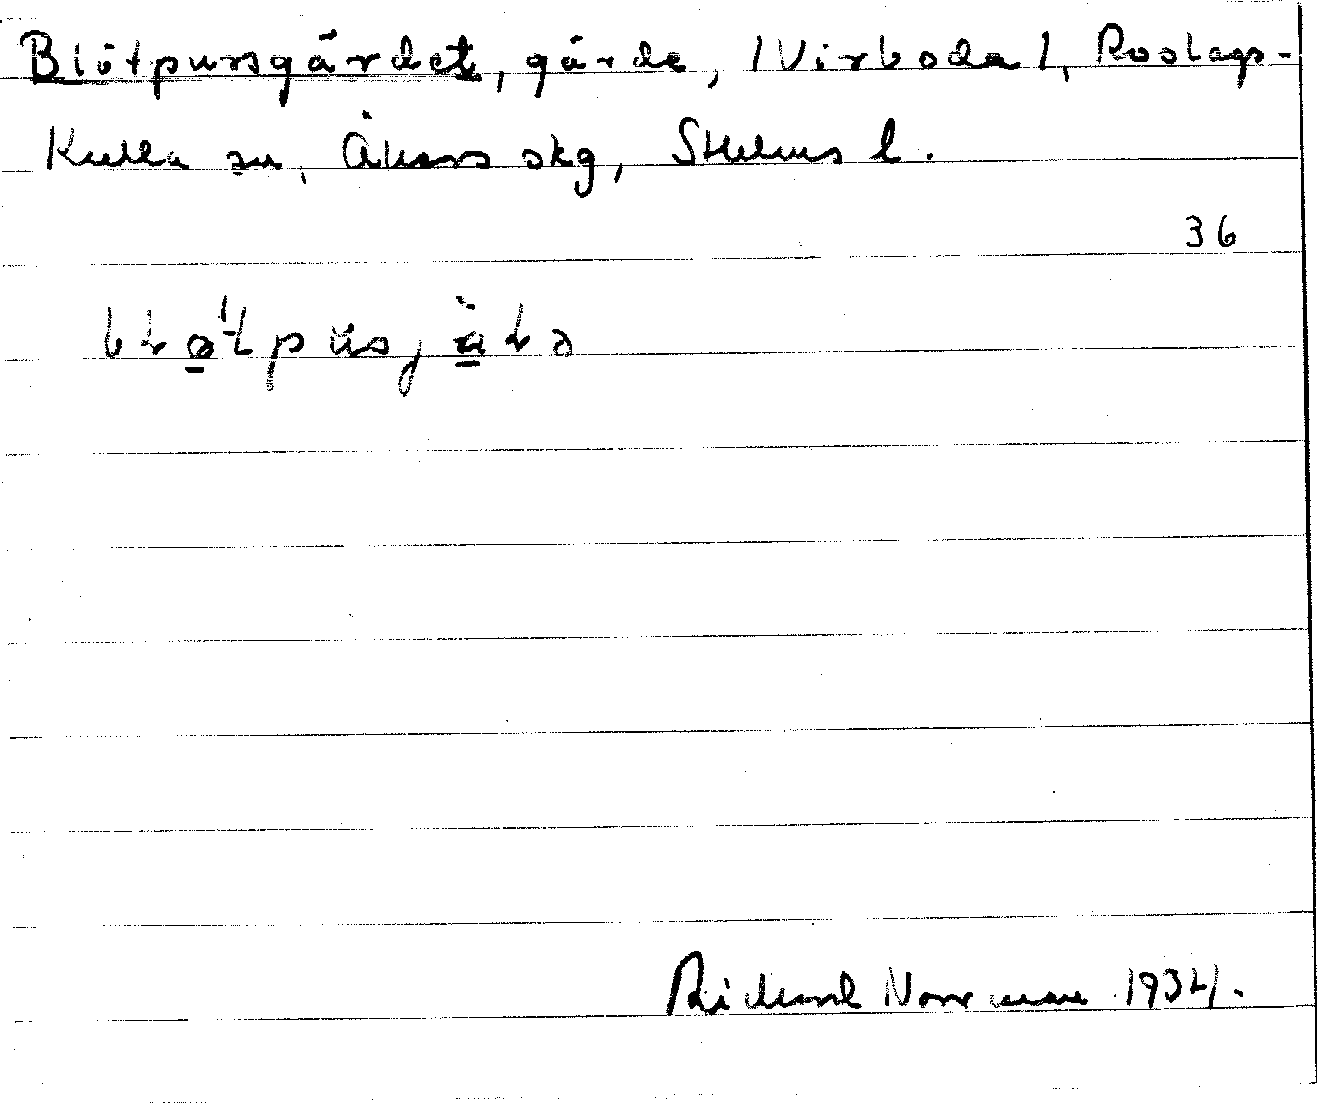 Blötpussgärdet, gärde, /Virboda/, Roslags-
Kulla sn, Åkers skg, Sthlms l.
36
Richard Norrman 1934.